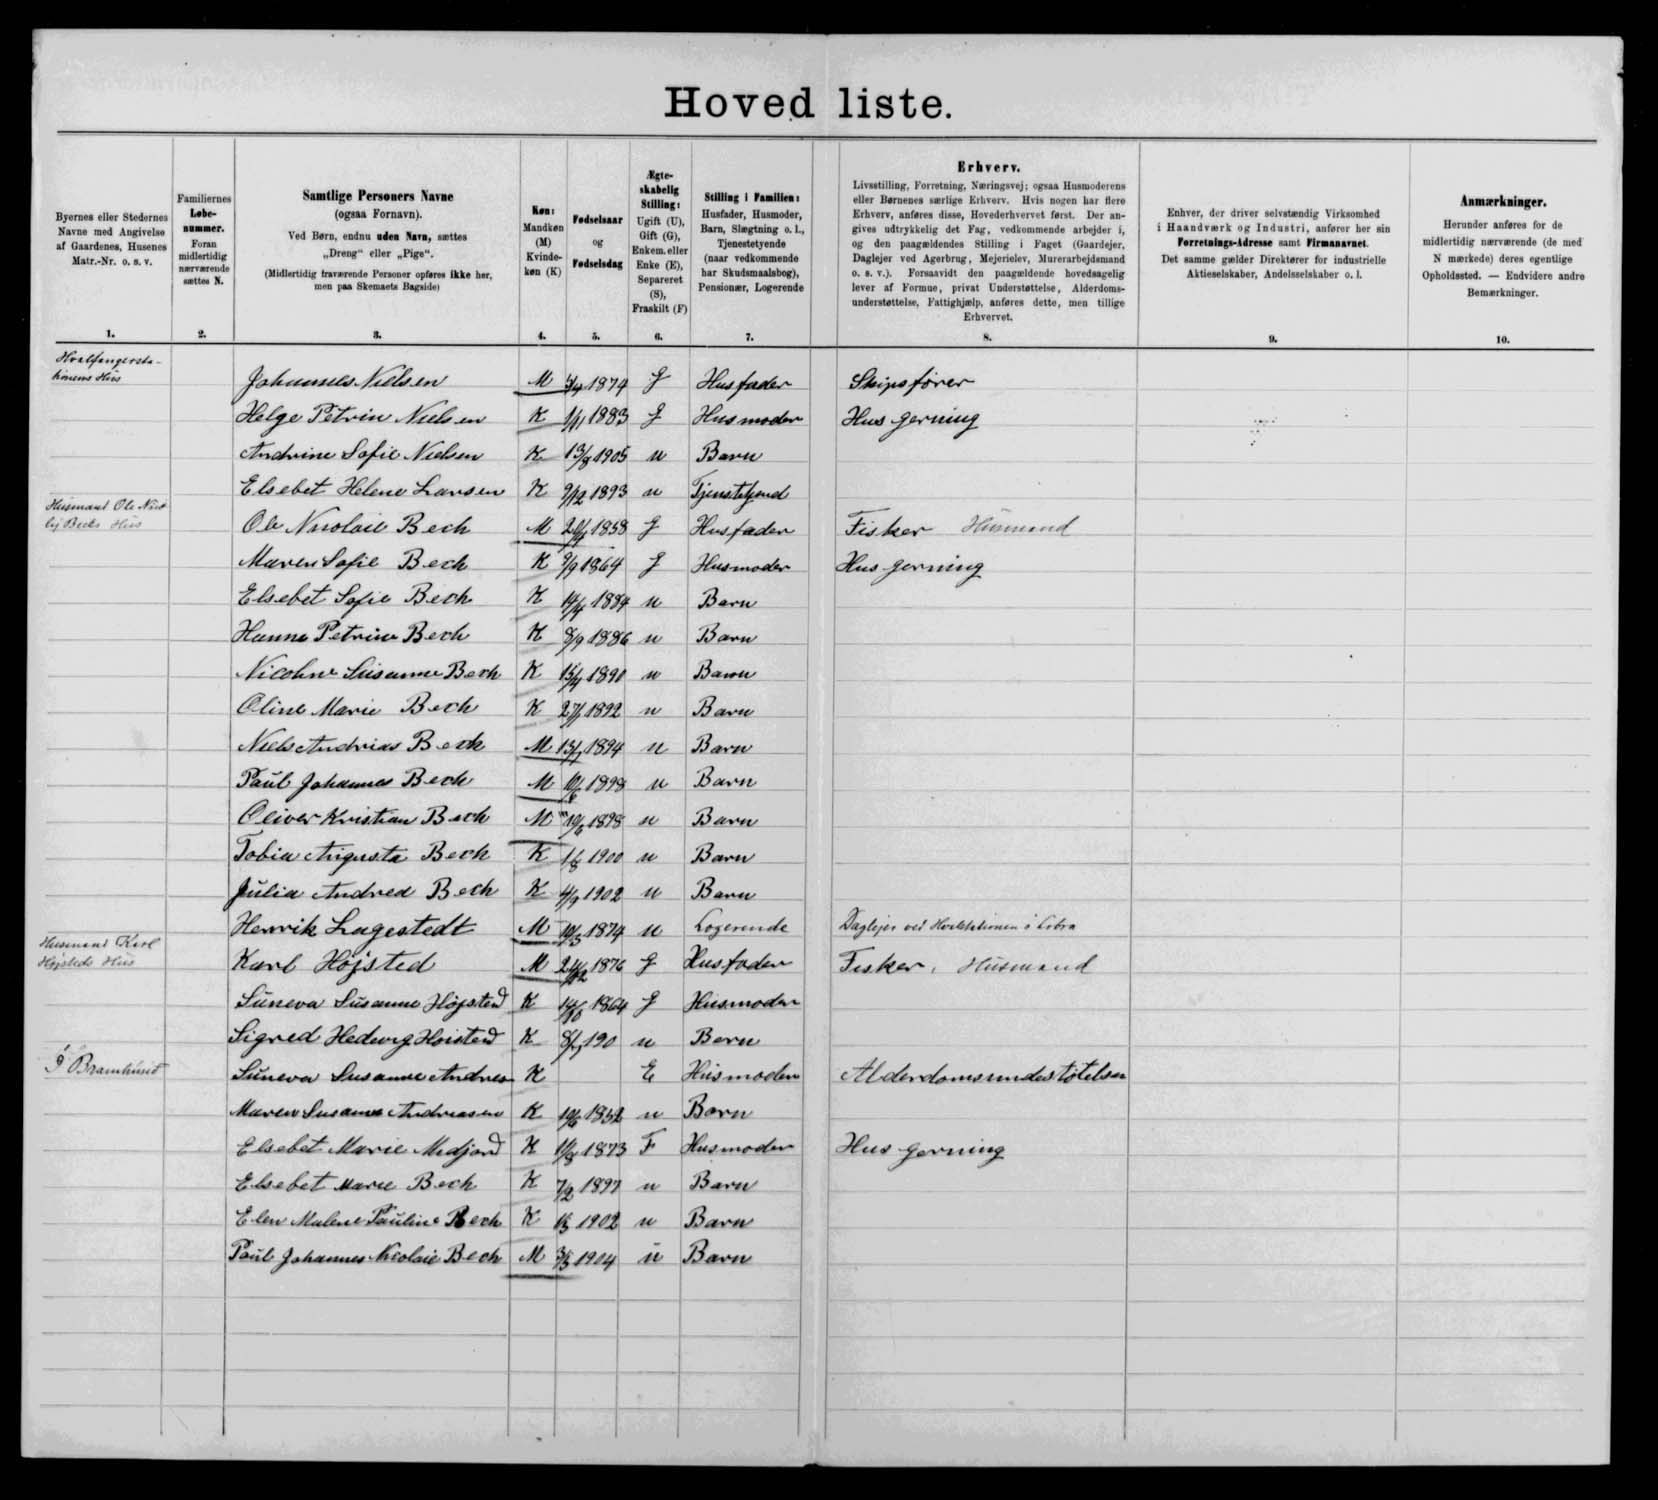 Hovedliste.
Byernes eller Stedernes
Navne med Angivelse
af Gaardenes, Husenes
Matr.-Nr. o. s. v.
1.
Familiernes
Løbe-
nummer.
Foran
midlertidig
nærværende
sættes N.
2.
Samtlige Personers Navne
(ogsaa Fornavn).
Ved Børn, endnu uden Navn, sættes
„Dreng“ eller „Pige“.
(Midlertidig fraværende Personer opføres ikke her,
men paa Skemaets Bagside)
3.
Køn:
Mandkøn
(M)
Kvinde-
køn (K)
4.
Fødselsaar
og
Fødselsdag
5.
Ægte-
skabelig
Stilling:
Ugift (U),
Gift (G),
Enkem. eller
Enke (E),
Separeret
(S),
Fraskilt (F)
6.
Stilling i Familien:
Husfader, Husmoder,
Barn, Slægtning o. l.,
Tjenestetyende
(naar vedkommende
har Skudsmaalsbog),
Pensionær, Logerende
7.
Erhverv.
Livsstilling, Forretning, Næringsvej; ogsaa Husmoderens
eller Børnenes særlige Erhverv. Hvis nogen har flere
Erhverv, anføres disse, Hovederhvervet først. Der an-
gives udtrykkelig det Fag, vedkommende arbejder i,
og den paagældendes Stilling i Faget (Gaardejer,
Daglejer ved Agerbrug, Mejerielev, Murerarbejdsmand
o. s. v.). Forsaavidt den paagældende hovedsagelig
lever af Formue, privat Understøttelse, Alderdoms-
understøttelse, Fattighjælp, anføres dette, men tillige
Erhvervet.
8.
Enhver, der driver selvstændig Virksomhed
i Haandværk og Industri, anfører her sin
Forretnings-Adresse samt Firmanavnet.
Det samme gælder Direktører for industrielle
Aktieselskaber, Andelsselskaber o. l.
9.
Anmærkninger.
Herunder anføres for de
midlertidig nærværende (de med
N mærkede) deres egentlige
Opholdssted. — Endvidere andre
Bemærkninger.
10.
Hvalfangersta-
tionens Hus
Johannes Nielsen M 1874 G Husfader Skipsfører
Helge Petrin Nielsen K 1/11 1883 G Husmoder Husgerning
Andrine Sofie Nielsen K 13/8 1905 u Barn
Elsebet Helene Larsen K 9/12 1893 u
Husmand Ole Nico-
laj Becks Hus
Ole Nicolaie Bech M 1858 G Husfader Fisker Husmand
Maren Sofie Bech K 9/9 1864 G Husmoder Husgerning
Elsebet Sofie Bech K 14/4 1884 u Barn
Hanne Petrine Bech K 8/9 1886 u Barn
Nicoline Susanne Bech K 15/4 1890 u Barn
Oline Marie Bech K 27/1 1892 u Barn
Niels Andrias Bech M 13/1 1894 u Barn
Paul Johannes Bech M 10/6 1898 u Barn
Oliver Kristian Bech M 10/6 1898 u Barn
Tobia Augusta Bech K 1/8 1900 u Barn
Julia Andrea Bech K 4/9 1902 u Barn
Henrik Lagestedt M 10/3 1874 u Logerende Daglejer ved Hvalstationen i Lobra
Husmand Karl
Højsteds Hus
Karl Højsted M 24/12 1876 G Husfader Fisker, Husmand
Suneva Susanne Højsted K 14/10 1864 G Husmoder
Sigred Hedevig Hoisted K 190 u Barn
I Bramhusid
Suneva Susanne Andrea K E Husmoder Alderdomsundestøtelsen
Maren Susanne Andreasen K 10/6 1852 u Barn
Elsebet Marie Midjord K 11/8 1873 F Husmoder Husgerning
Elsebet Marie Bech K 7/2 1897 u Barn
Elen Malene Pauline Bech K 1/3 1902 u Barn
Paul Johannes Nicolaie Bech M 3/3 1904 u Barn